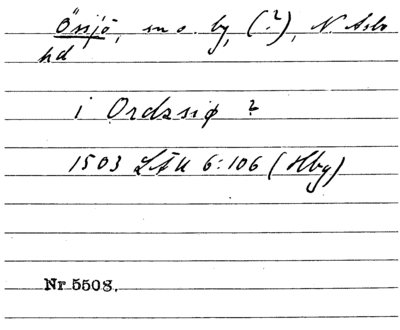 Össjö, sn o. by, (?), N. Åsbo
hd
i Ordzsiø ?
1503 LÄU 6:106 (Hbg)
Nr 5508.